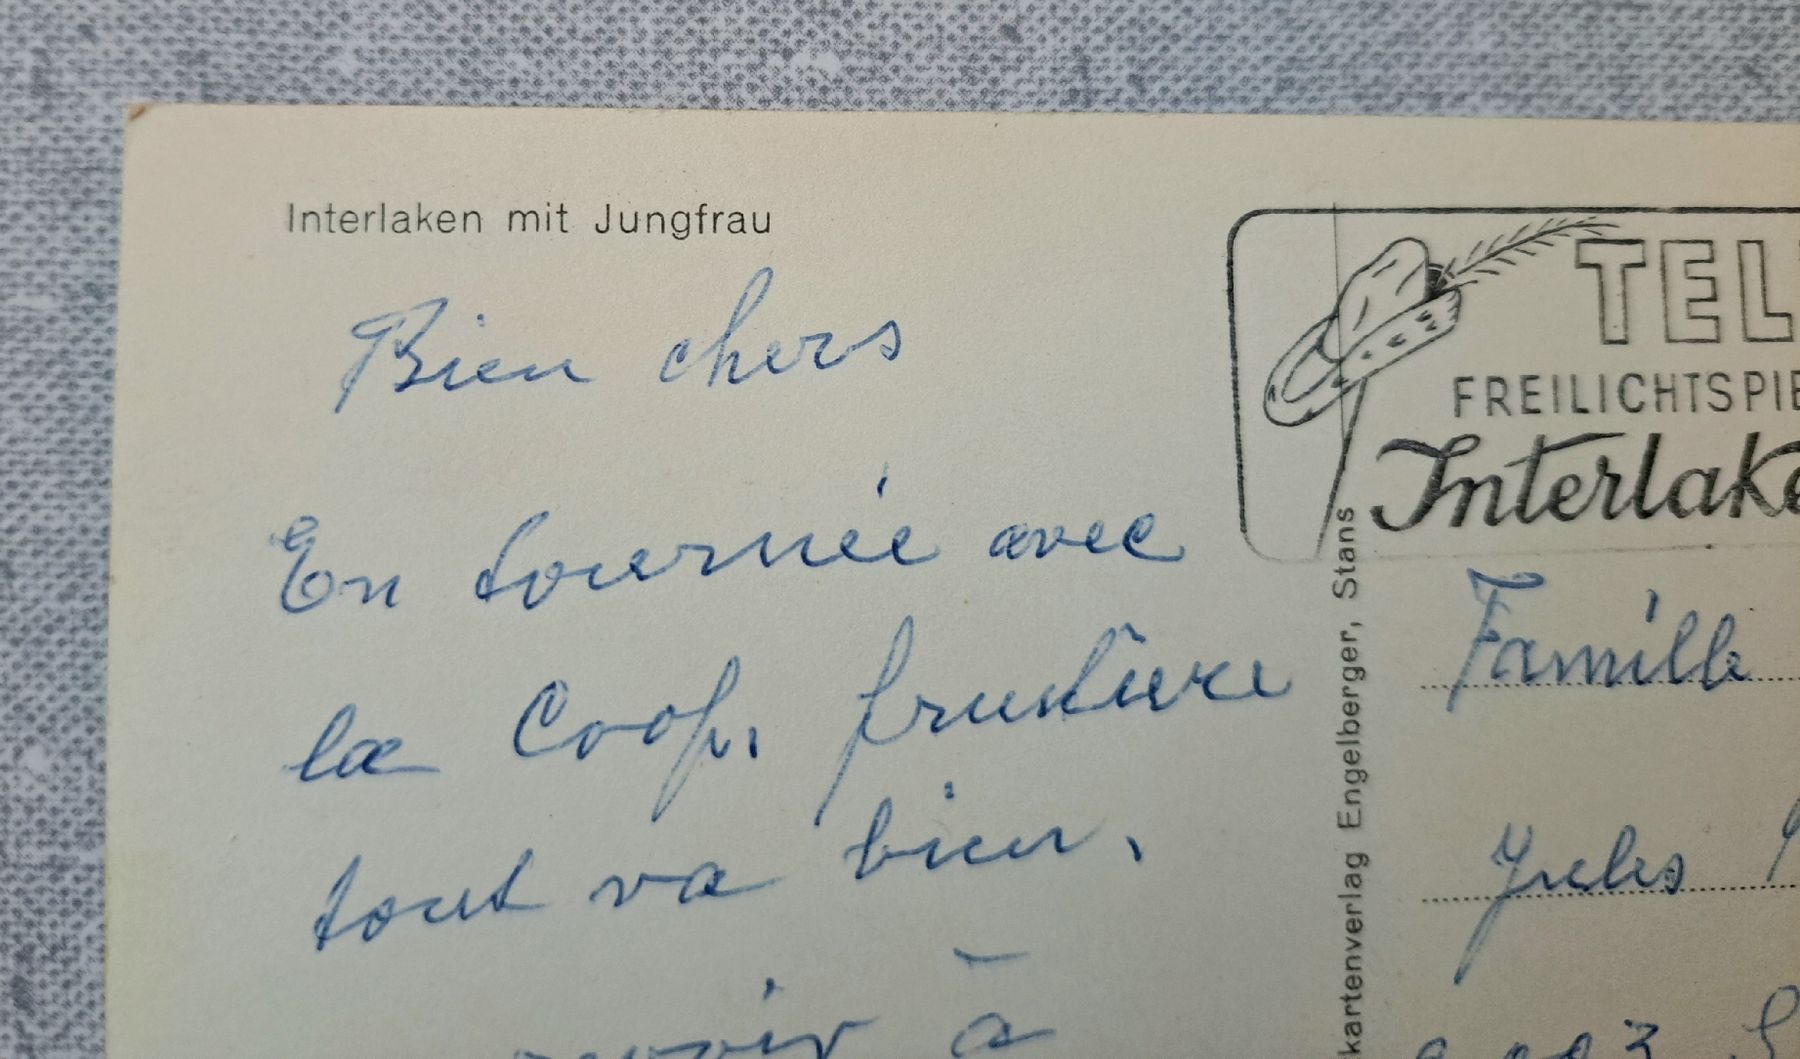 Interlaken mit Jungfrau
Bien chers
En tournée avec
la Coop. fruitière
tout va bien.
revoir à
TEL
FREILICHTSPIE
Interlake
kartenverlag Engelberger, Stans
Famille
Jules